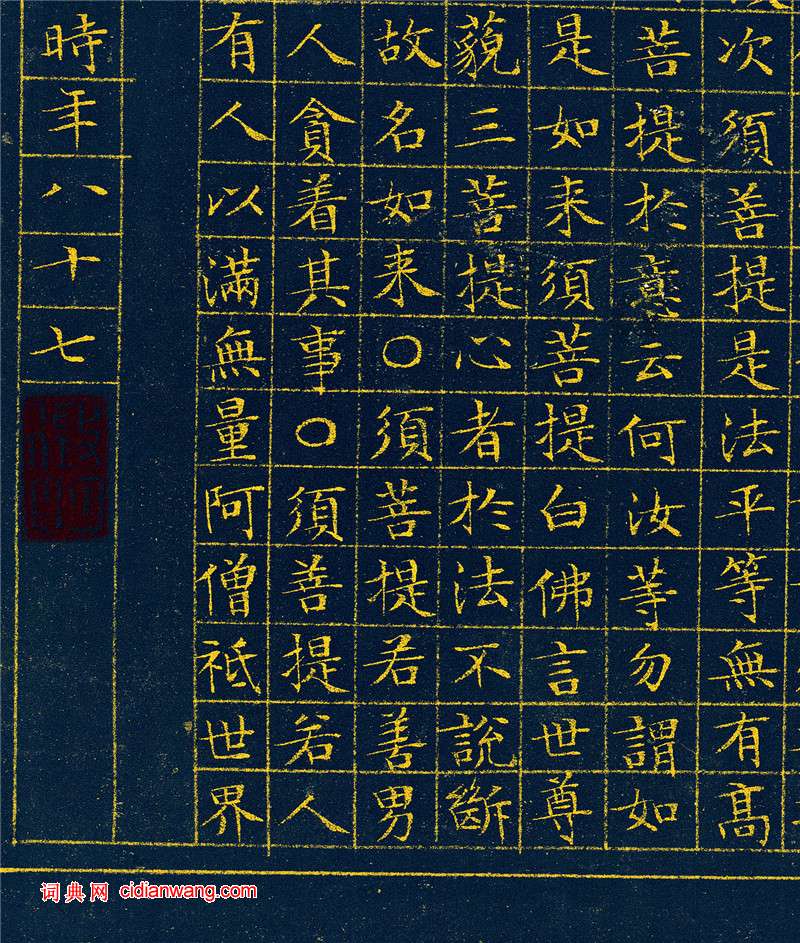 次須善提是法平等無有高
菩提於意云何汝等勿謂如
是如来須菩提白佛言世尊
藐三菩提心者於法不說斷
故名如来〇須菩提若善男
人貪着其事〇須善提若人
有人以滿無量阿僧祇世界
時年八十七
词典网 cidianwang.com